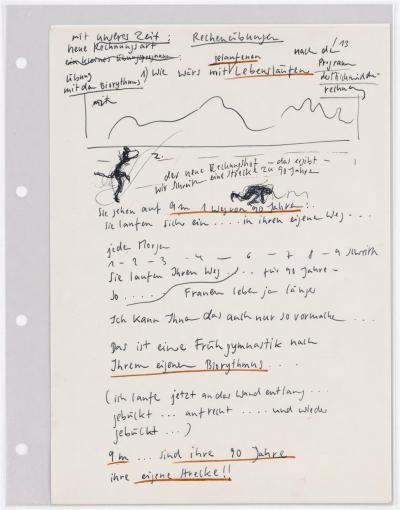 mit unseres Zeit:
Rechenübungen
neue Rechnungsart
ein kleines Übungsprogramm
Übung
mit dem Biorythmus
gelaufenen
1) Wie wärs mit Lebensläufen
nach de /13
Programm
rechnung
2.
der neue Rechnungshof - das ergibt -
wir schreiten eine Strecke zu 90 Jahre
Sie sehen auf 9m 1 Weg von 90 Jahre:.
Sie laufen sicher ein .... in ihren eigene Weg...
jede Morgen
1 - 2 - 3 - 4 - 6 - 7 8 - 9 Schritt
Sie laufen Ihren Weg ... für 90 Jahre -
So .... Frauen leben ja länger
Ich kann Ihnen das auch nur so vormache ...
Das ist eine Frühgymnastik nach
Ihrem eigenen Biorythmus....
(ich laufe jetzt an der Wand entlang...
gebückt ... aufrecht .... und wieder
gebückt ...)
9m ... sind ihre 90 Jahre
ihre eigene Strecke!!